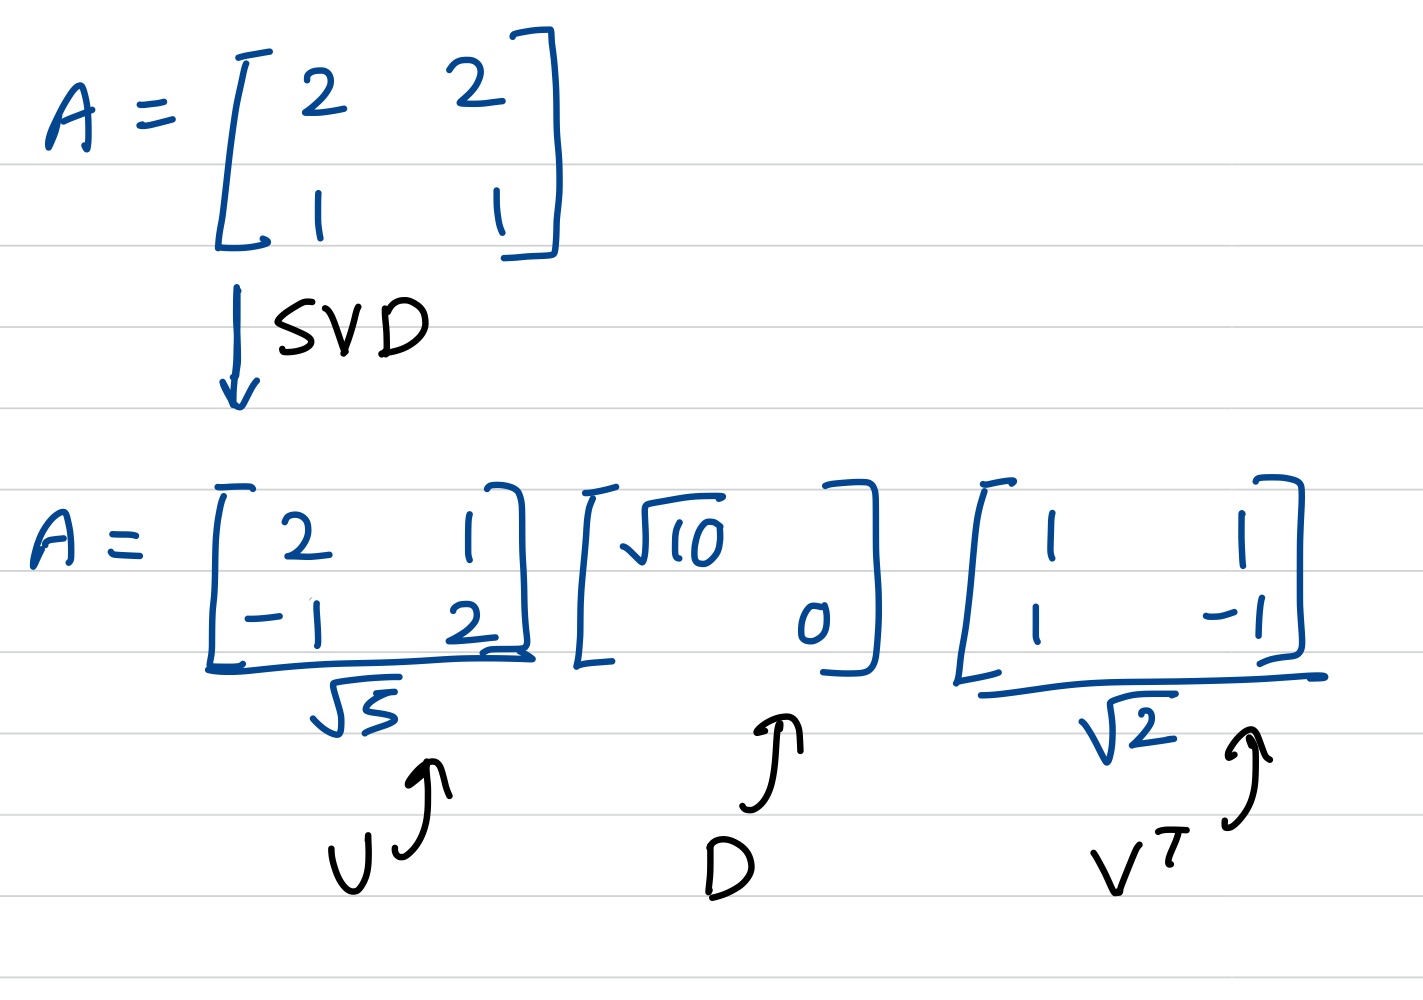 A = [2 2
1 1]
↓ SVD
A = [2 1
-1 2] / √5 [√10
0] [1 1
1 -1] / √2
U D V^T